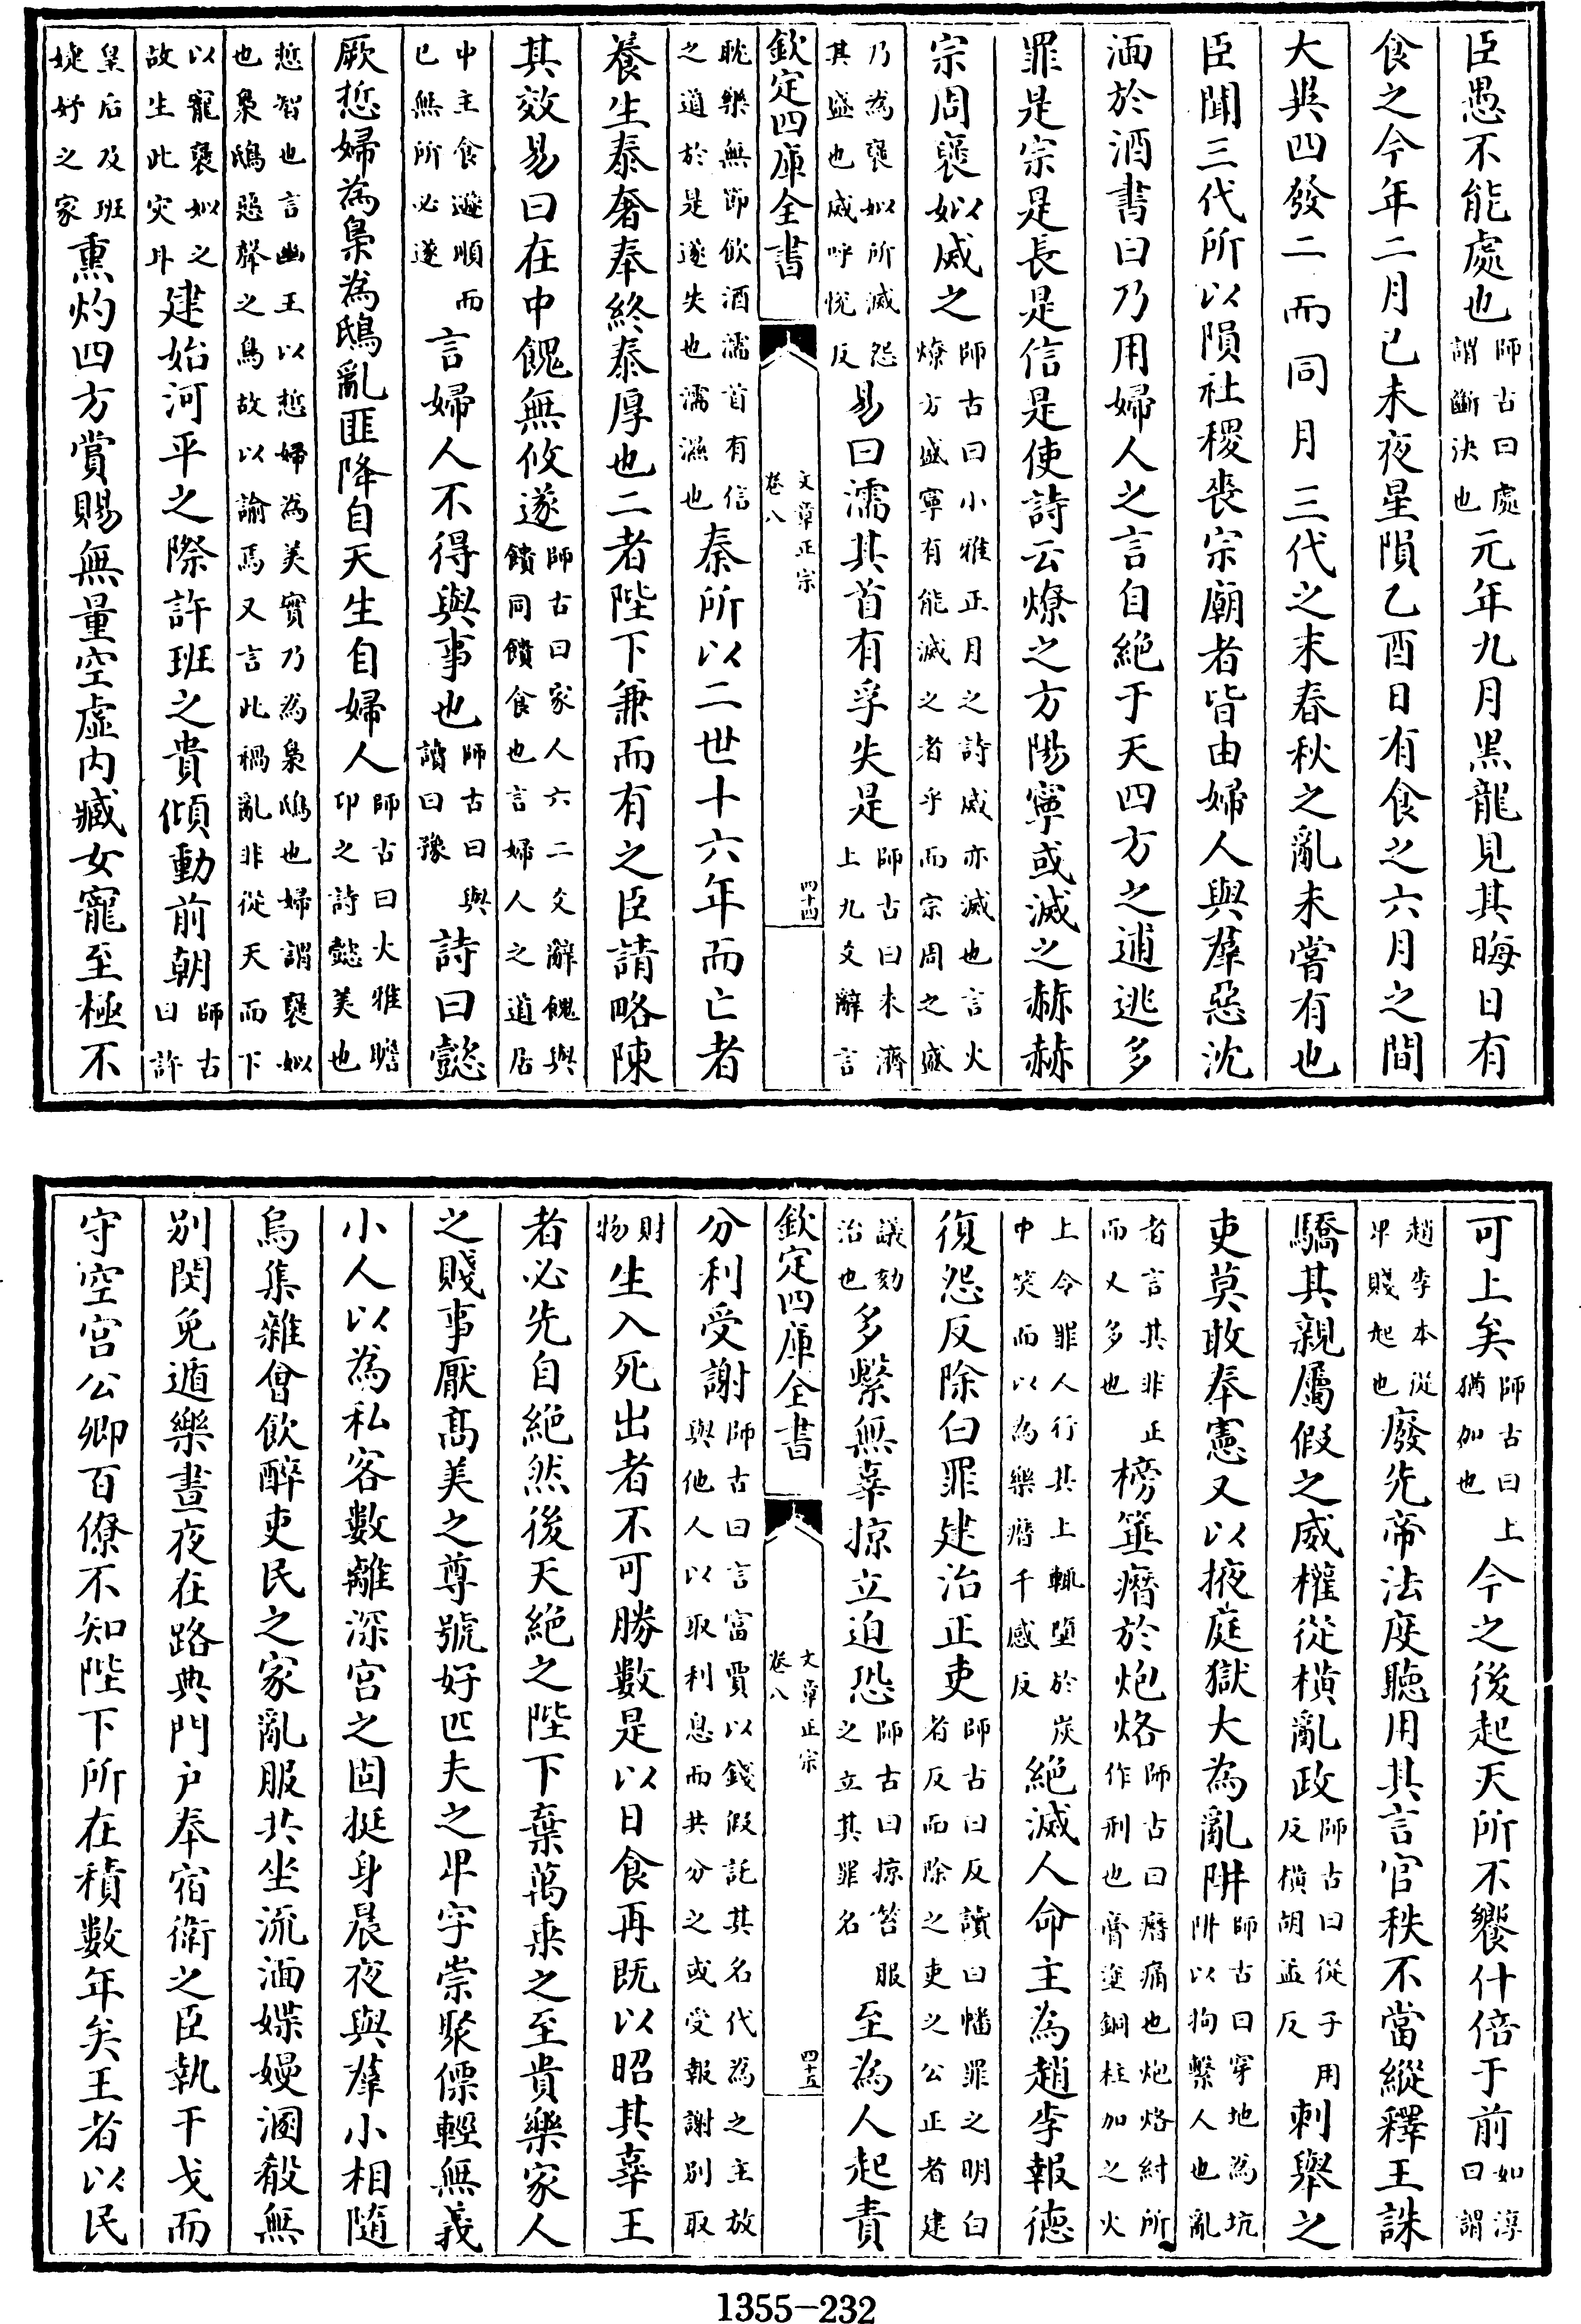 臣愚不能處也師古曰處謂斷決也元年九月黑龍見其晦日有
食之今年二月己未夜星隕乙酉日有食之六月之間
大異四發二而同月三代之末春秋之亂未嘗有也
臣聞三代所以隕社稷喪宗廟者皆由婦人與羣惡沈
湎於酒書曰乃用婦人之言自絶于天四方之逋逃多
罪是宗是長是信是使詩云燎之方陽寧或滅之赫赫
宗周襃姒烕之師古曰小雅正月之詩烕亦滅也言火燎方盛寧有能滅之者乎而宗周之盛
乃為襃姒所滅怨其盛也烕呼悅反易曰濡其首有孚失是師古曰未濟上九爻辭言
欽定四庫全書
文章正宗
卷八
四十四
耽樂無節飲酒濡首有信之道於是遂失也濡濕也秦所以二世十六年而亡者
養生泰奢奉終泰厚也二者陛下兼而有之臣請略陳
其效易曰在中餽無攸遂師古曰家人六二爻辭餽與饋同饋食也言婦人之道居
中主食遜順而已無所必遂言婦人不得與事也師古曰與讀曰豫詩曰懿
厥悊婦為梟為鴟亂匪降自天生自婦人師古曰大雅瞻卬之詩懿美也
悊智也言幽王以悊婦為美實乃為梟鴟也婦謂襃姒也梟鴟惡聲之鳥故以諭焉又言此禍亂非從天而下
以寵襃姒之故生此灾耳建始河平之際許班之貴傾動前朝師古曰許
皇后及班婕妤之家熏灼四方賞賜無量空虛内臧女寵至極不
可上矣師古曰上猶加也今之後起天所不饗什倍于前如淳曰謂
趙李本從卑賤起也廢先帝法度聽用其言官秩不當縱釋王誅
驕其親屬假之威權從横亂政師古曰從子用反横胡孟反刺舉之
吏莫敢奉憲又以掖庭獄大為亂阱師古曰穿地為坑阱以拘繫人也亂
者言其非正而又多也榜箠㿊於炮烙師古曰㿊痛也炮烙紂所作刑也膏塗銅柱加之火
上令罪人行其上輒墮於炭中笑而以為樂㿊千感反絶滅人命主為趙李報德
復怨反除白罪建治正吏師古曰反讀曰幡罪之明白者反而除之吏之公正者建
議劾治也多繫無辜掠立迫恐師古曰掠笞服之立其罪名至為人起責
欽定四庫全書
文章正宗
卷八
四十五
分利受謝師古曰言富賈以錢假託其名代為之主放與他人以取利息而共分之或受報謝别取
財物生入死出者不可勝數是以日食再既以昭其辜王
者必先自絶然後天絶之陛下棄萬乗之至貴樂家人
之賤事厭髙美之尊號好匹夫之卑字崇聚僄輕無義
小人以為私客數離深宫之固挺身晨夜與羣小相隨
烏集雜會飲醉吏民之家亂服共坐流湎媟嫚溷殽無
别閔免遁樂晝夜在路典門户奉宿衛之臣執干戈而
守空宫公卿百僚不知陛下所在積數年矣王者以民
1355-232